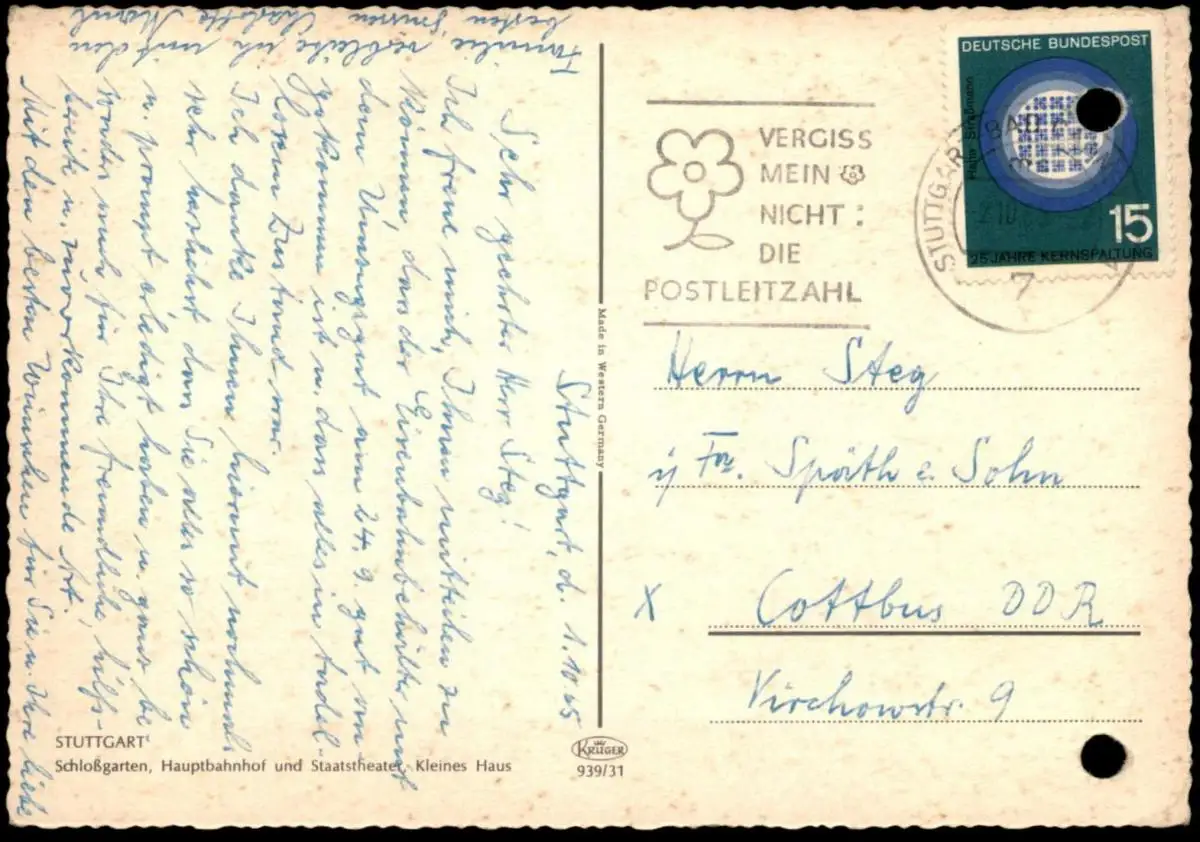 Stuttgart, d. 1.10.65
Sehr geehrter Herr Steg!
Ich freue mich, Ihnen mitteilen zu
können, dass der Eisenbahnbehälter mit
dem Umzugsgut am 24.9. gut an-
gekommen ist u. dass alles in tadel-
losem Zustand war.
Ich danke Ihnen hiermit nochmals
sehr herzlichst dass Sie alles so schön
u. prompt erledigt haben u. ganz be
sonders auch für Ihre freundliche, hilfs-
bereite u. zuvorkommende Art.
Mit den besten Wünschen für Sie u. Ihre liebe
Familie, verbleibe ich mit den
besten Grüssen Charlotte
STUTTGART
Schloßgarten, Hauptbahnhof und Staatstheater, Kleines Haus
Made in Western Germany
KRÜGER
939/31
VERGISS
MEIN
NICHT:
DIE
POSTLEITZAHL
STUTTGART-BAD
7
DEUTSCHE BUNDESPOST
Hahn-Straßmann
15
25 JAHRE KERNSPALTUNG
Herrn Steg
i/ Fa. Späth & Sohn
X Cottbus DDR
Virchowstr. 9